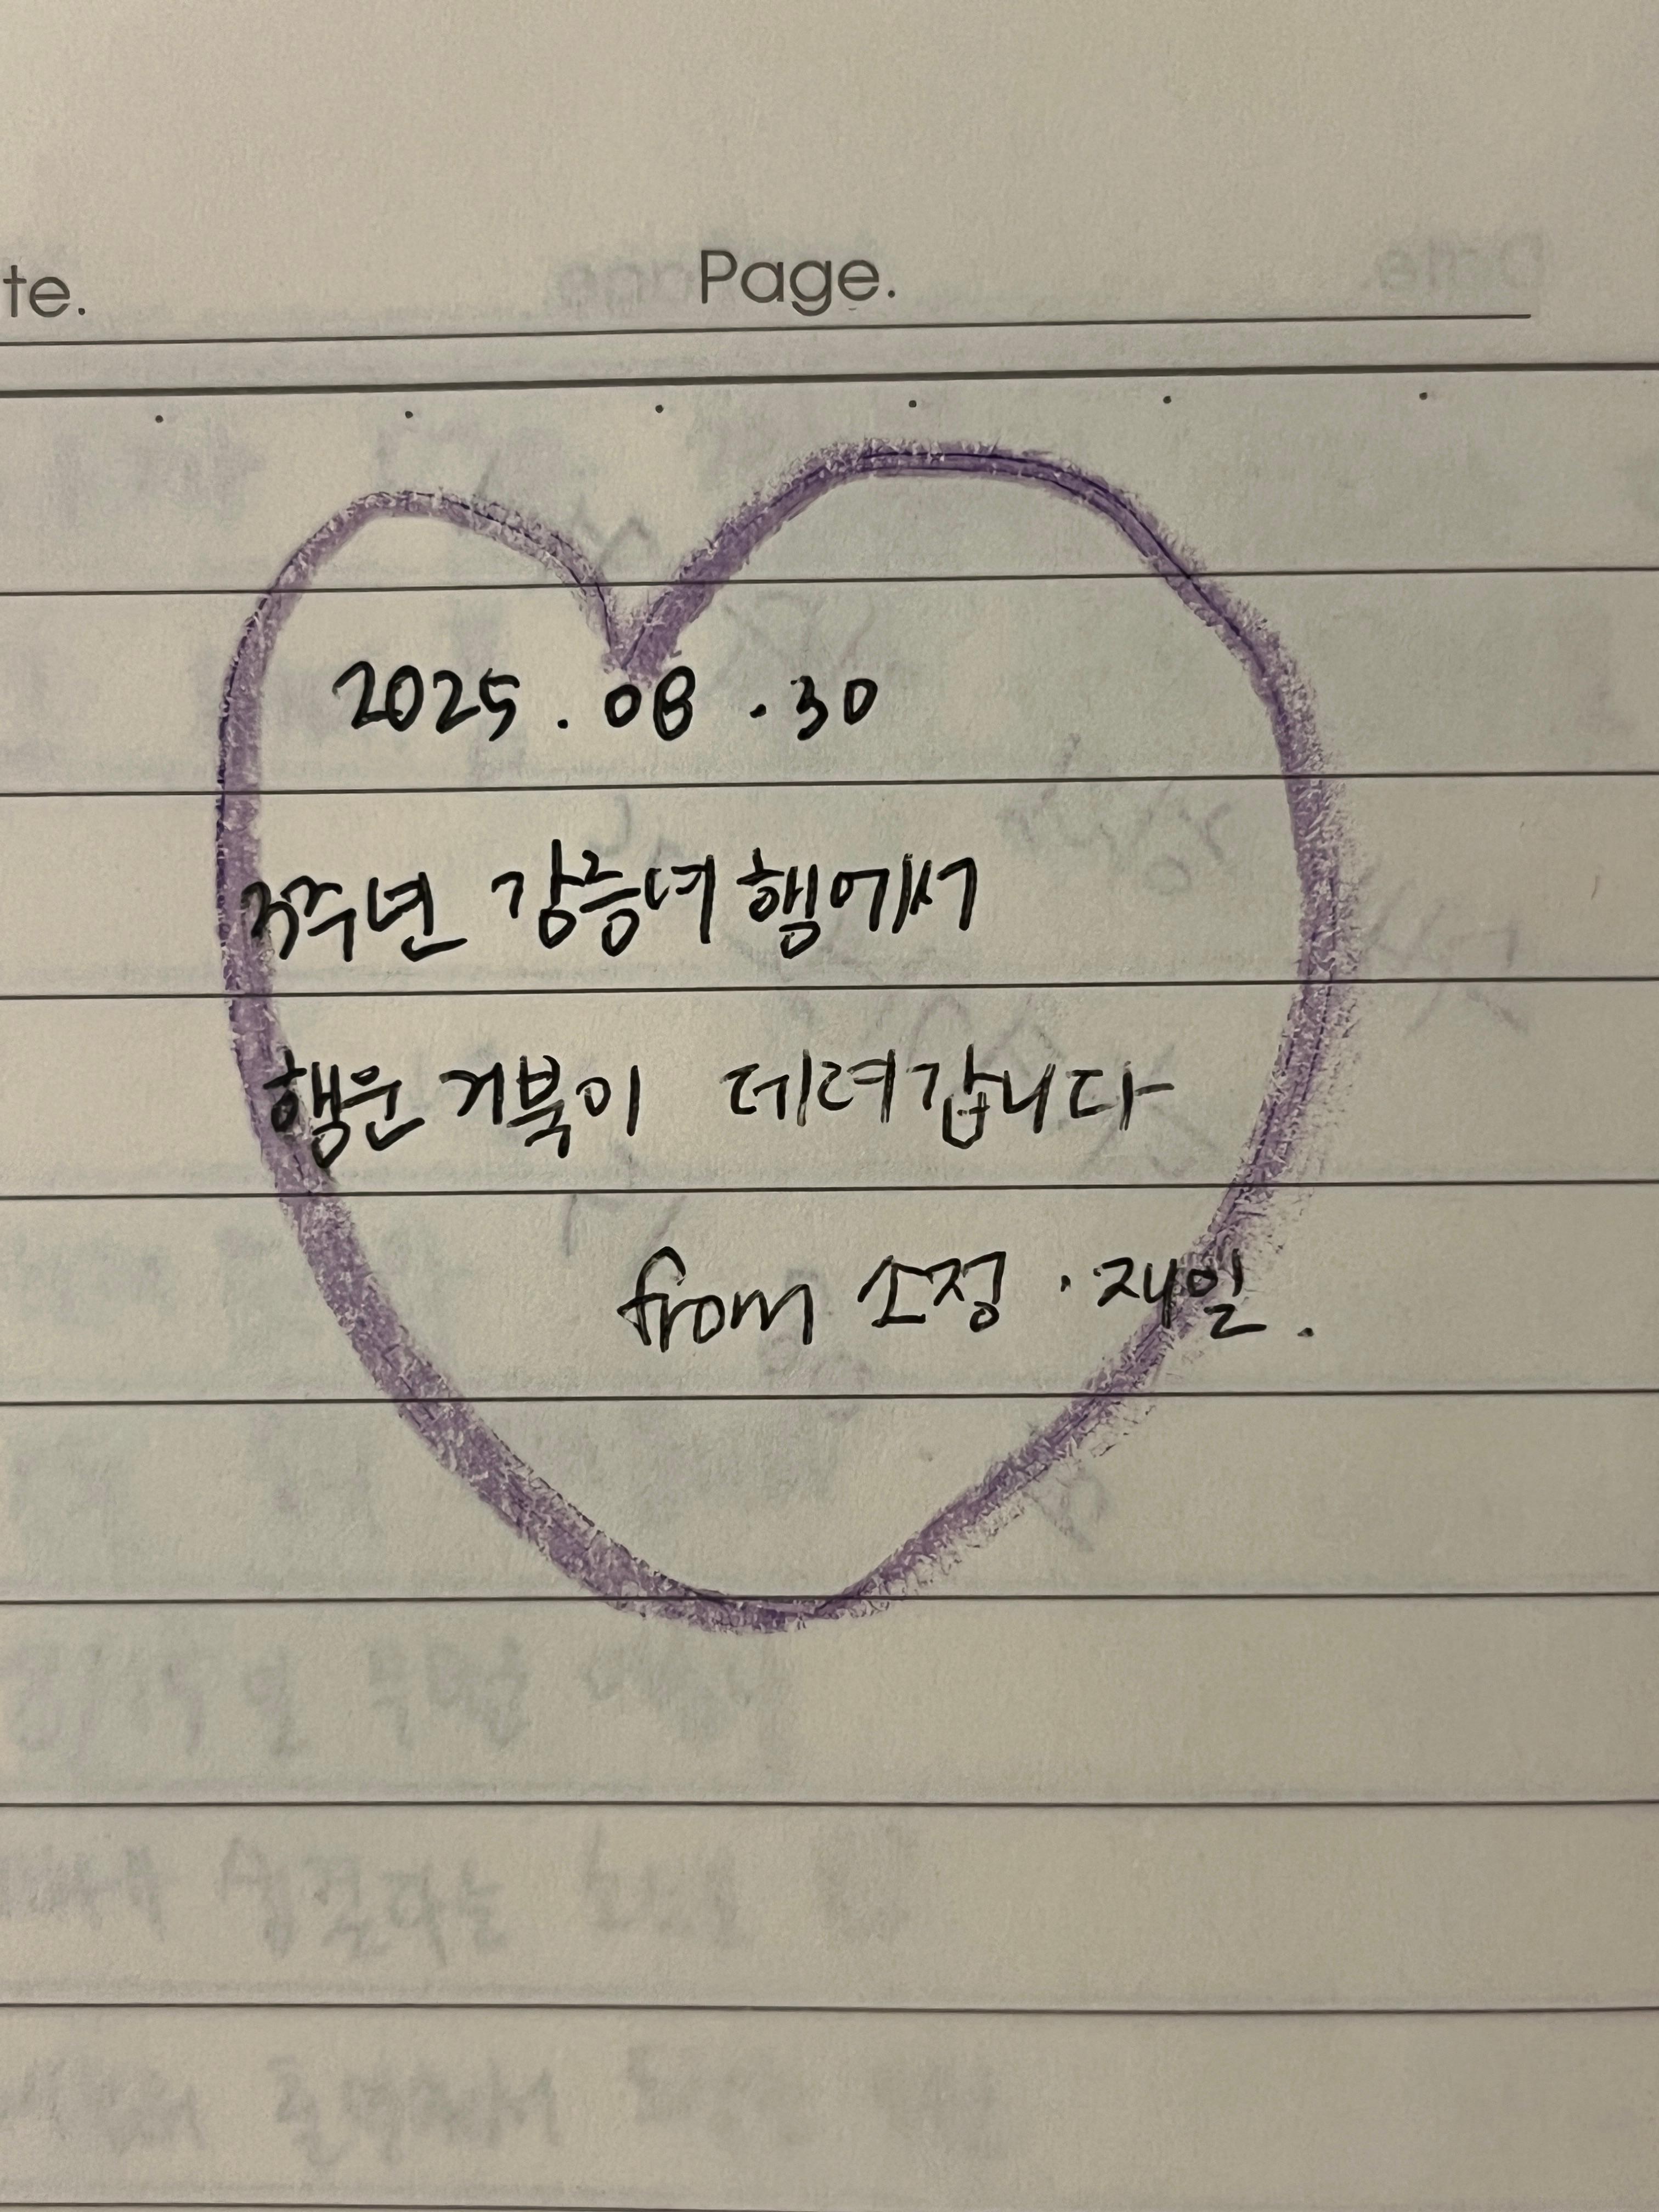 te. Page.
2025.08.30
3주년 강릉녀행에서
행운거북이 데려갑니다
from 소정·재일.